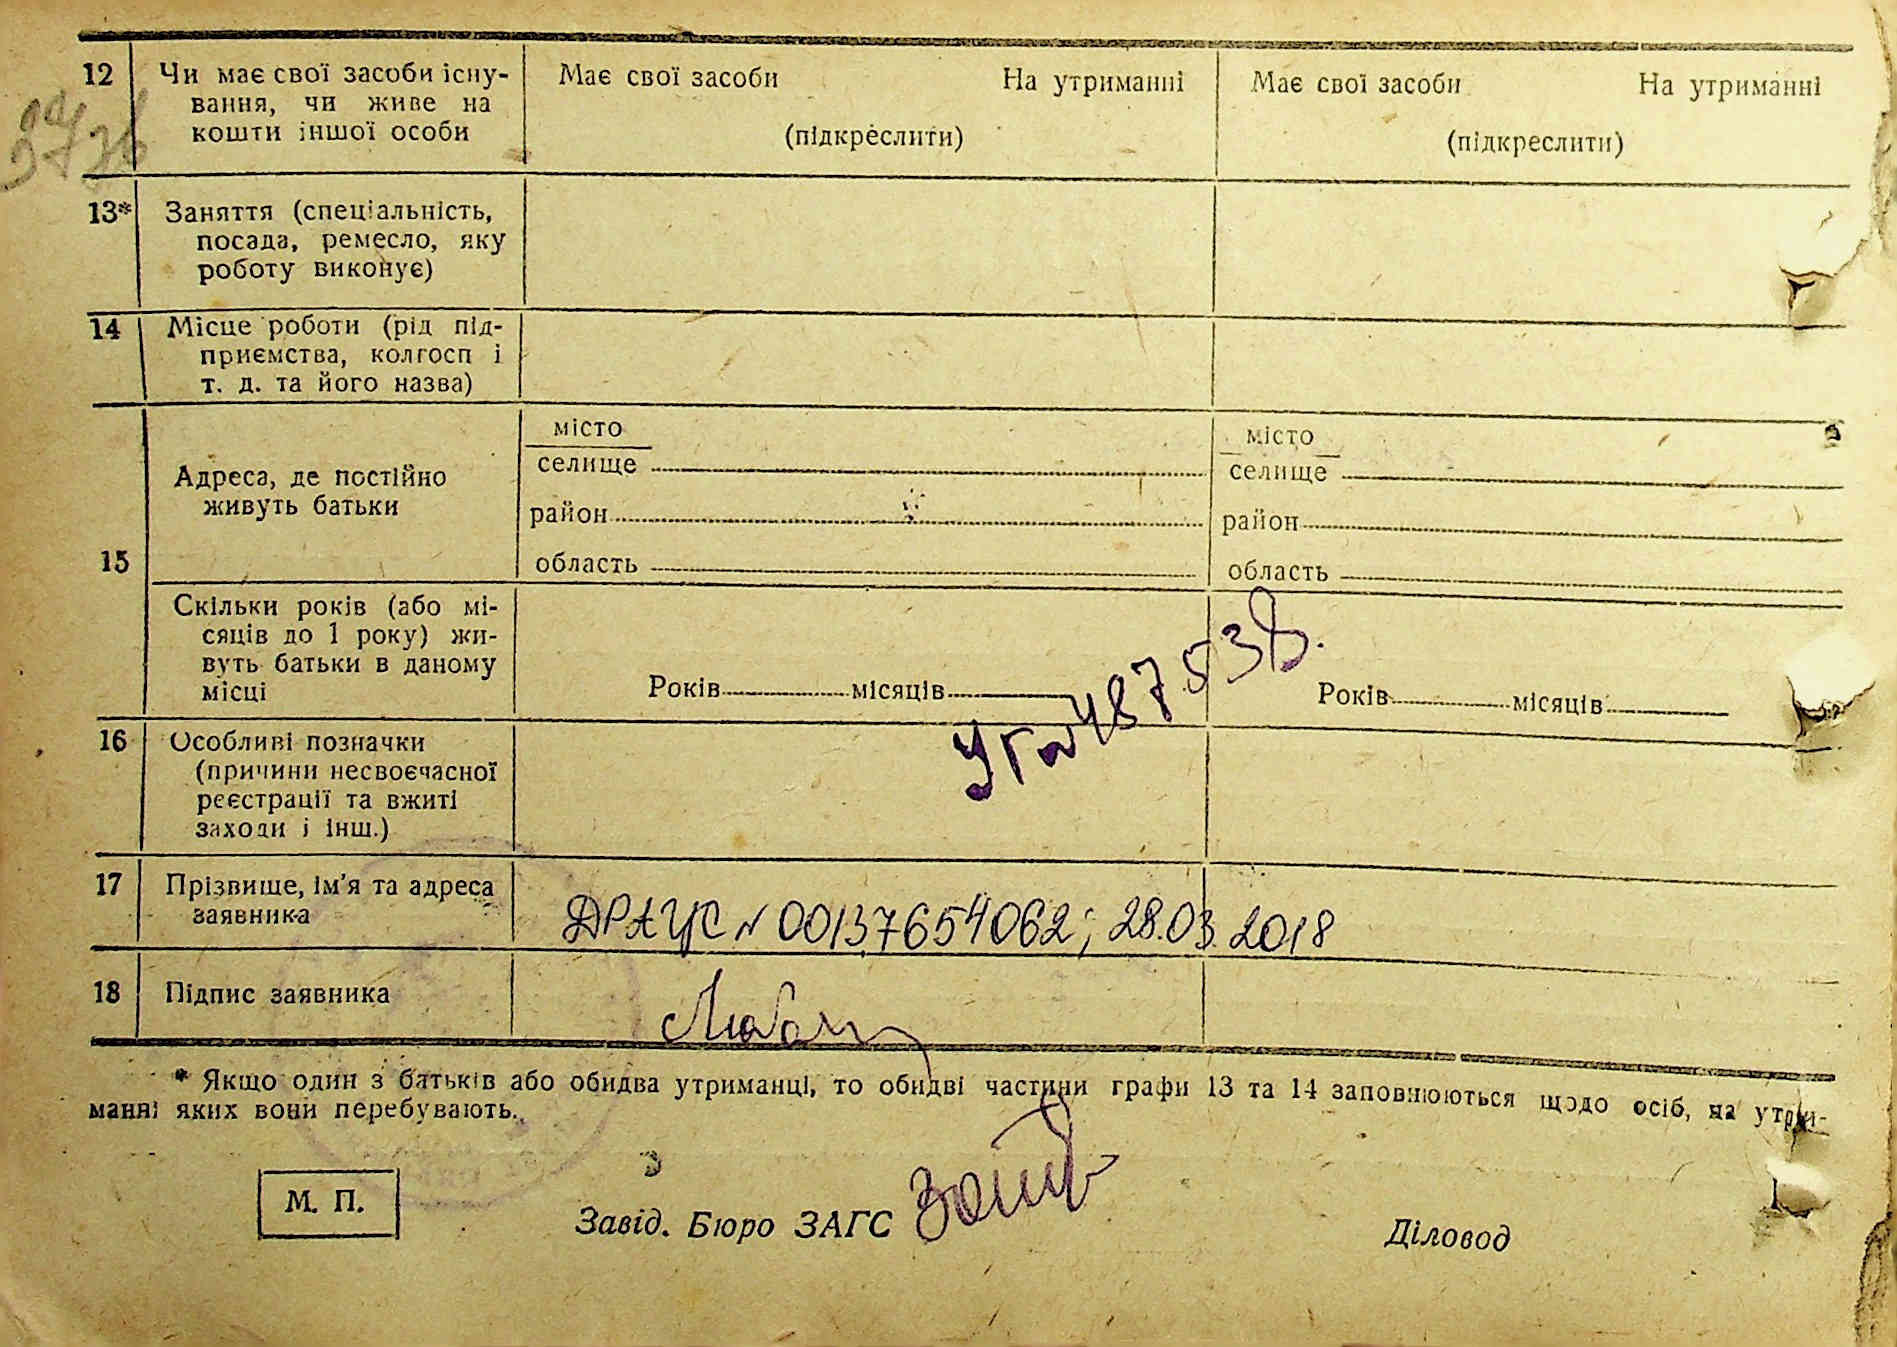 12 Чи має свої засоби існу-
вання, чи живе на
кошти іншої особи
Має свої засоби На утриманні
(підкреслити)
Має свої засоби На утриманні
(підкреслити)
13* Заняття (спеціальність,
посада, ремесло, яку
роботу виконує)
14 Місце роботи (рід під-
приємства, колгосп і
т. д. та його назва)
15
Адреса, де постійно
живуть батьки
місто
селище
район
область
місто
селище
район
область
Скільки років (або мі-
сяців до 1 року) жи-
вуть батьки в даному
місці
Років місяців
Років місяців
16 Особливі позначки
(причини несвоєчасної
реєстрації та вжиті
заходи і інш.)
17 Прізвище, ім'я та адреса
заявника
ДРАЦС N 00137654062; 28.03.2018
18 Підпис заявника
* Якщо один з батьків або обидва утриманці, то обидві частини графи 13 та 14 заповнюються щодо осіб, на утри-
манні яких вони перебувають.
М. П.
Завід. Бюро ЗАГС
Діловод